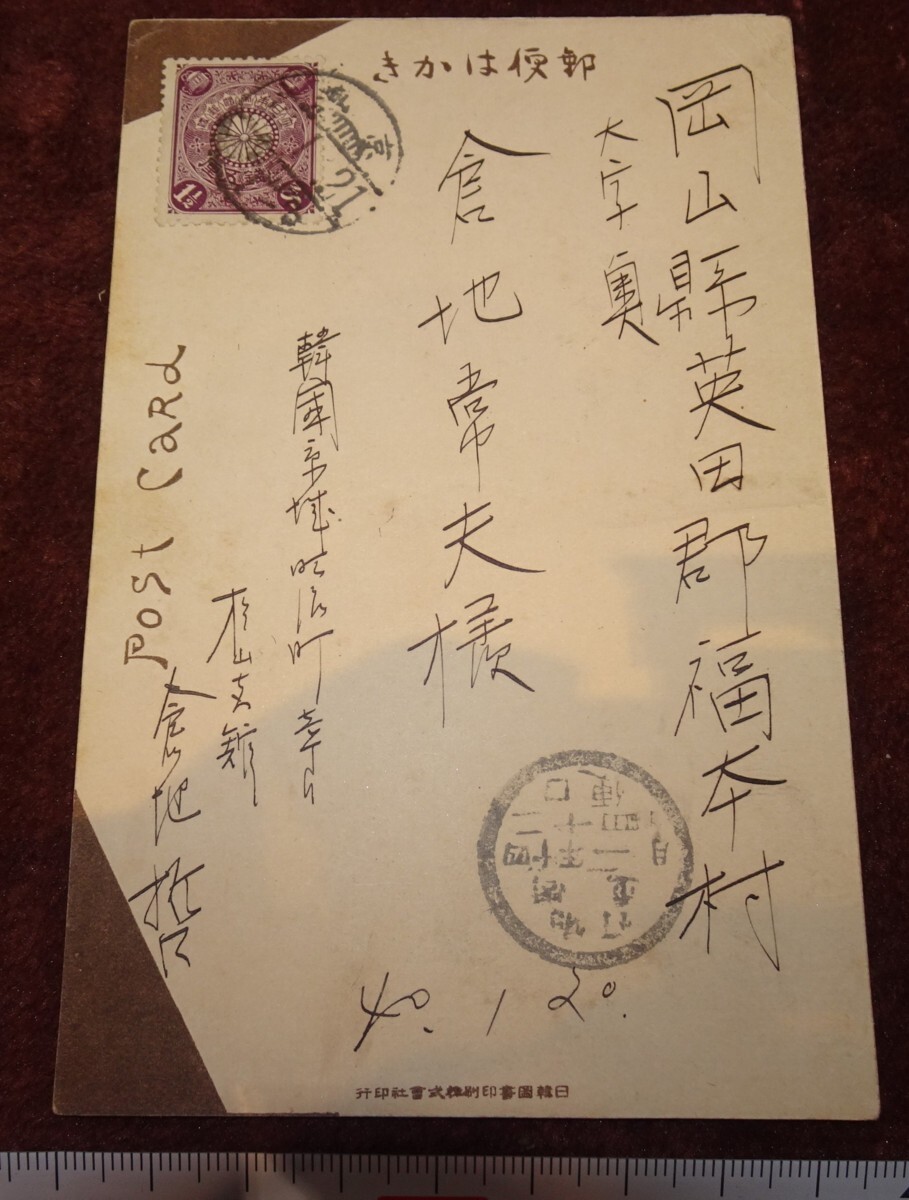 郵便はかき
岡山縣英田郡福本村
大字奥
倉地常夫様
韓国京城明治町
杉山支館
倉地哲
POST CARD
1½
40. 1 20.
日韓圖書印刷株式會社印行